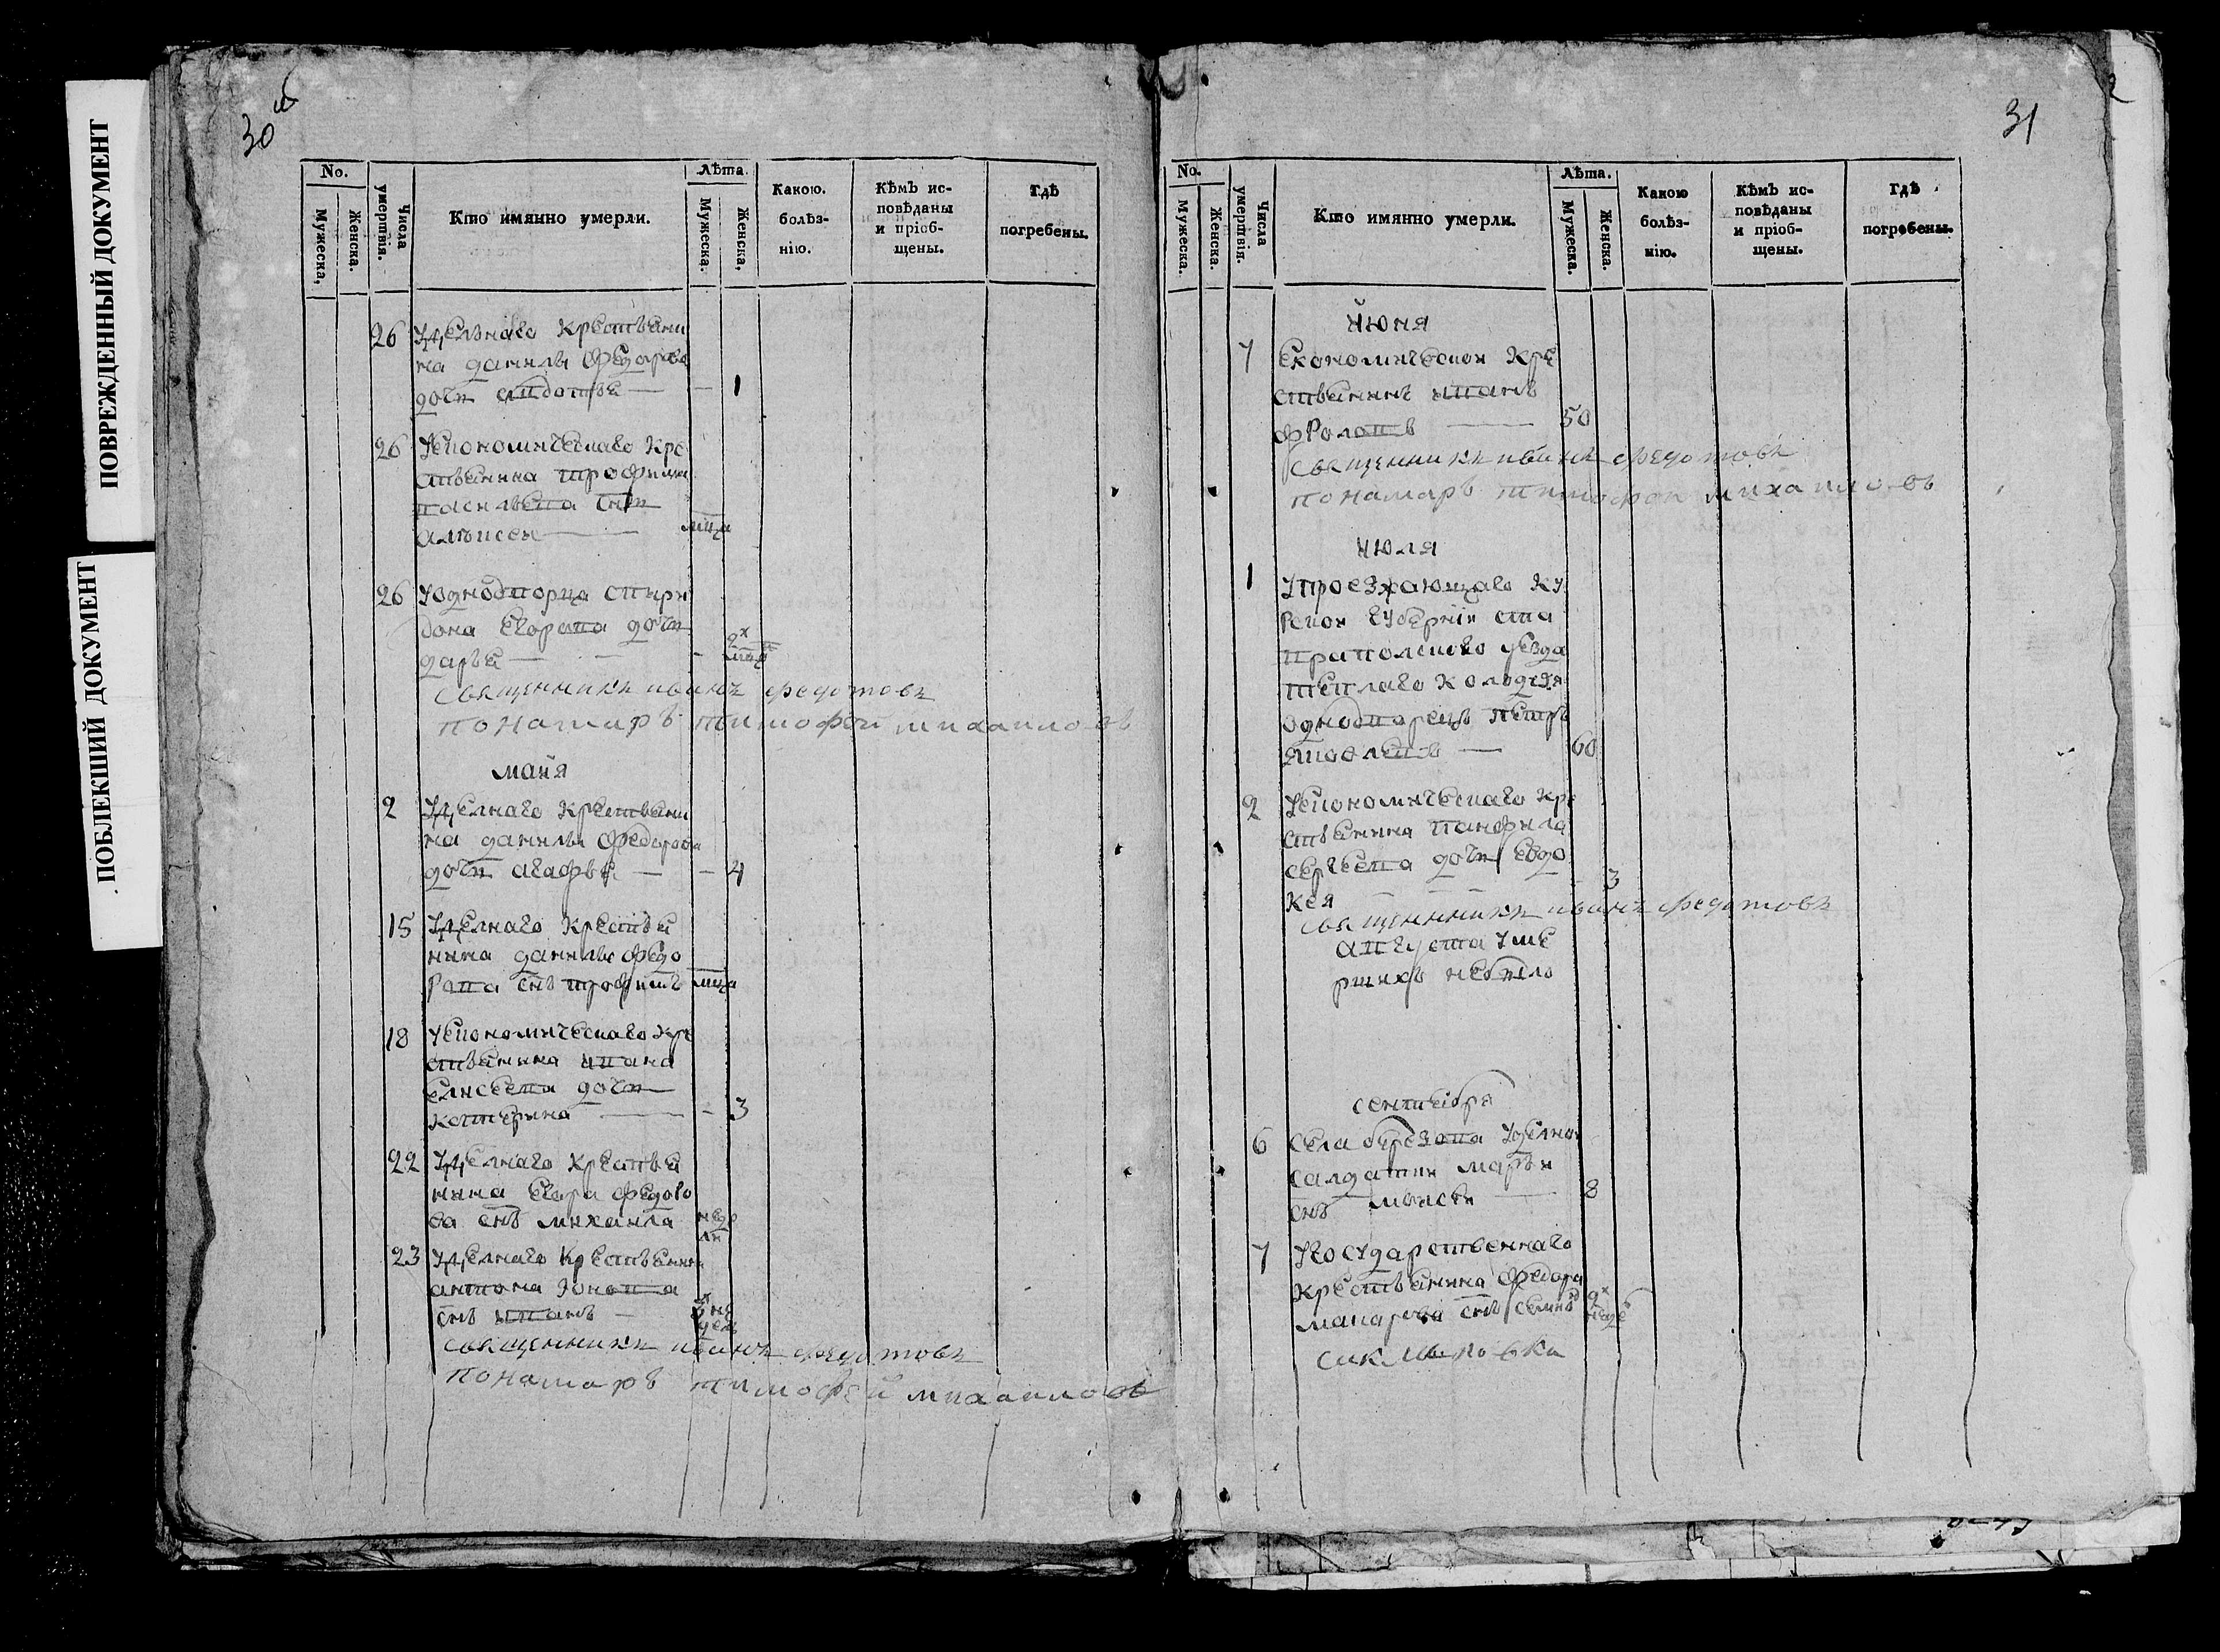 ПОВРЕЖДЕННЫЙ ДОКУМЕНТ
ПОБЛЕКШИЙ ДОКУМЕНТ
30 об
No.
Мужеска,
Женска.
Числа умертвія.
Кто имянно умерли.
Лѣта.
Мужеска.
Женска,
Какою.
болѣз-
нію.
Кѣмъ ис-
повѣданы
и пріоб-
щены.
Гдѣ
погребены.
26 Удельнаго крестьяни
на данилы федорова
дочь – 1
26 Уекономическаго кре
стьянина трофима
васильева снъ
алексей мца
26 Уоднодворца спири
дона Егорова дочь
дарья – 2х мцв
священникъ иванъ федотовъ
понамарь тимофей михаиловъ
майя
2 Уделнаго крестьяни
на данилы федорова
дочь агафья – 4
15 Уделнаго крестья
нина данилы федо
рова снъ трофимъ мца
18 Уекономическаго кре
стьянина ивана
елисеева дочь
катерина – 3
22 Уделнаго крестья
нина Егора федото
ва снъ михаила неде
ли
23 Уделнаго крестьянин
антона
снъ иванъ – 3х не
дель
священникъ иванъ федотовъ
понамарь тимофей михаиловъ
31
No.
Мужеска.
Женска.
Числа умертвія.
Кто имянно умерли.
Лѣта.
Мужеска.
Женска.
Какою
болѣз-
нію.
Кѣмъ ис-
повѣданы
и пріоб-
щены.
Гдѣ
погребены.
июня
7 Економической кре
стьянинъ иванъ
фроловъ 50
священникъ иванъ федотовъ
понамарь тимофей михаиловъ
июля
1 Упроезжающаго ку
рской губерніи ста
вропольскаго уезда
теплаго колодезя
однодворецъ петръ
яковлевъ 60
2 Уекономическаго кре
стьянина панфила
сергеева дочь евдо
кея 3
священникъ иванъ федотовъ
августа уме
ршихъ небыло
сентебря
6 села уделной
салдатки марьи
снъ моисей 8
7 Угосударственнаго
крестьянина федора
макарова снъ 2х неде